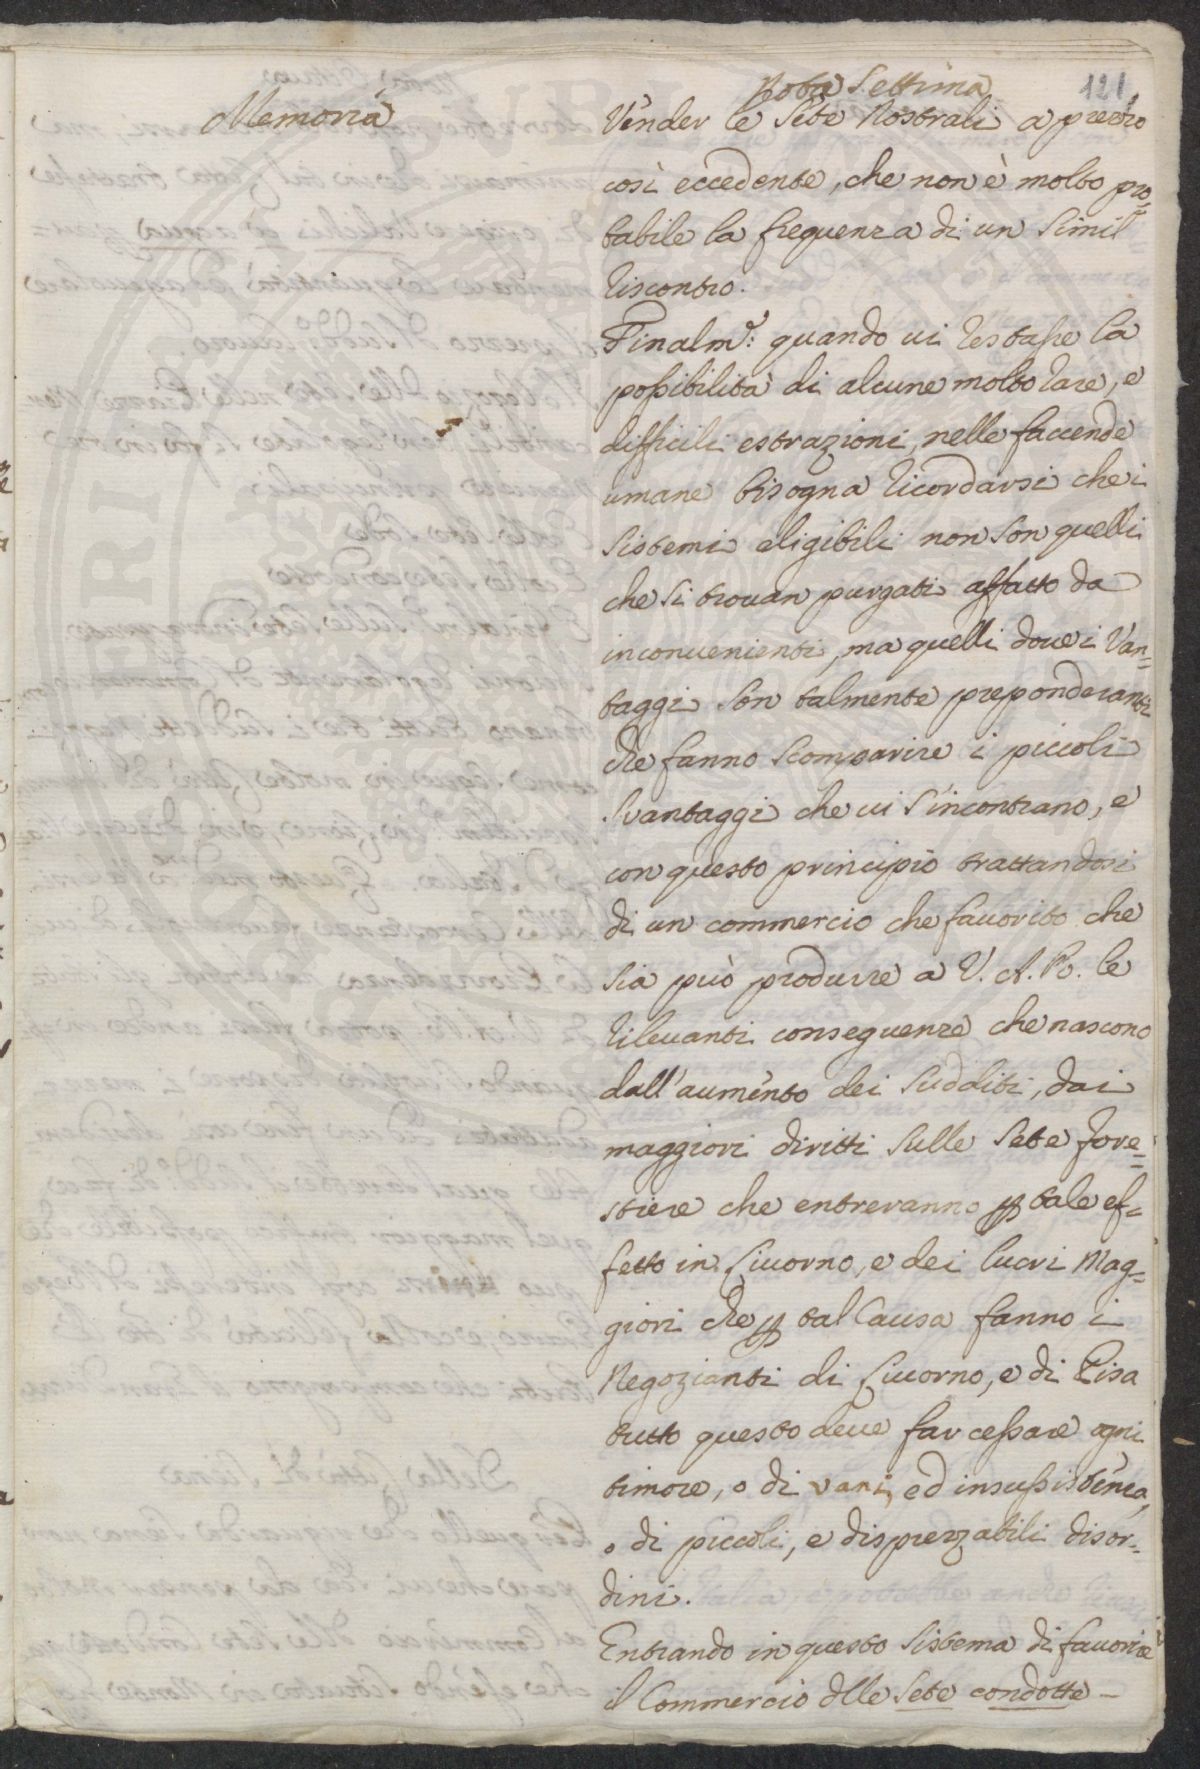 Memoria
Nota Settima
121
Vender le Sete Nostrali a prezzo
così eccedente, che non è molto pro=
babile la frequenza di un Simil
riscontro.
Finalm.e: quando vi restasse la
possibilità di alcune molto rare, e
difficili estrazioni, nelle faccende
umane bisogna ricordarsi che i
Sistemi eligibili non Son quelli
che Si trovan purgati affatto da
inconvenienti, ma quelli dove i Van=
taggi Son talmente preponderanti
che fanno Scomparire i piccoli
Svantaggi che vi S'incontrano, e
con questo principio trattandosi
di un commercio che favorito che
Sia può produrre a V. A. R. le
rilevanti conseguenze che nascono
dall'aumento dei Sudditi, dai
maggiori diritti Sulle Sete fore=
stiere che entreranno p tale ef=
fetto in Livorno, e dei lucri Mag=
giori che p tal Causa fanno i
Negozianti di Livorno, e di Pisa
tutto questo deve far cessare ogni
timore, o di vani, ed insussistenza,
o di piccoli, e disprezzabili disor=
dini.
Entrando in questo Sistema di favorire
il Commercio dlle Sete condotte -